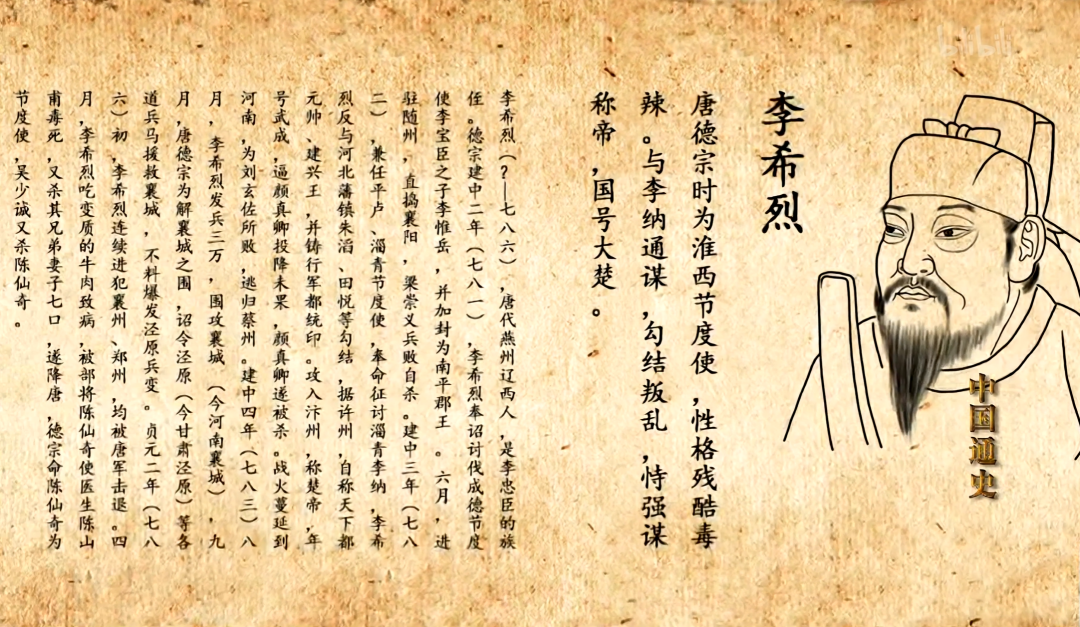 李希烈
唐德宗时为淮西节度使，性格残酷毒
辣。与李纳通谋，勾结叛乱，恃强谋
称帝，国号大楚。
李希烈（？—七八六），唐代燕州辽西人，是李忠臣的族
侄。德宗建中二年（七八一），李希烈奉诏讨伐成德节度
使李宝臣之子李惟岳，并加封为南平郡王。六月，进
驻随州，直捣襄阳，梁崇义兵败自杀。建中三年（七八
二），兼任平卢、淄青节度使，奉命征讨淄青李纳，李希
烈反与河北藩镇朱滔、田悦等勾结，据许州，自称天下都
元帅、建兴王，并铸行军都统印。攻入汴州，称楚帝，年
号武成，逼颜真卿投降未果，颜真卿遂被杀。战火蔓延到
河南，为刘玄佐所败，逃归蔡州。建中四年（七八三）八
月，李希烈发兵三万，围攻襄城（今河南襄城），九
月，唐德宗为解襄城之围，诏令泾原（今甘肃泾原）等各
道兵马援救襄城，不料爆发泾原兵变。贞元二年（七八
六）初，李希烈连续进犯襄州、郑州，均被唐军击退。四
月，李希烈吃变质的牛肉致病，被部将陈仙奇使医生陈山
甫毒死，又杀其兄弟妻子七口，遂降唐，德宗命陈仙奇为
节度使，吴少诚又杀陈仙奇。
中国通史
bilibili